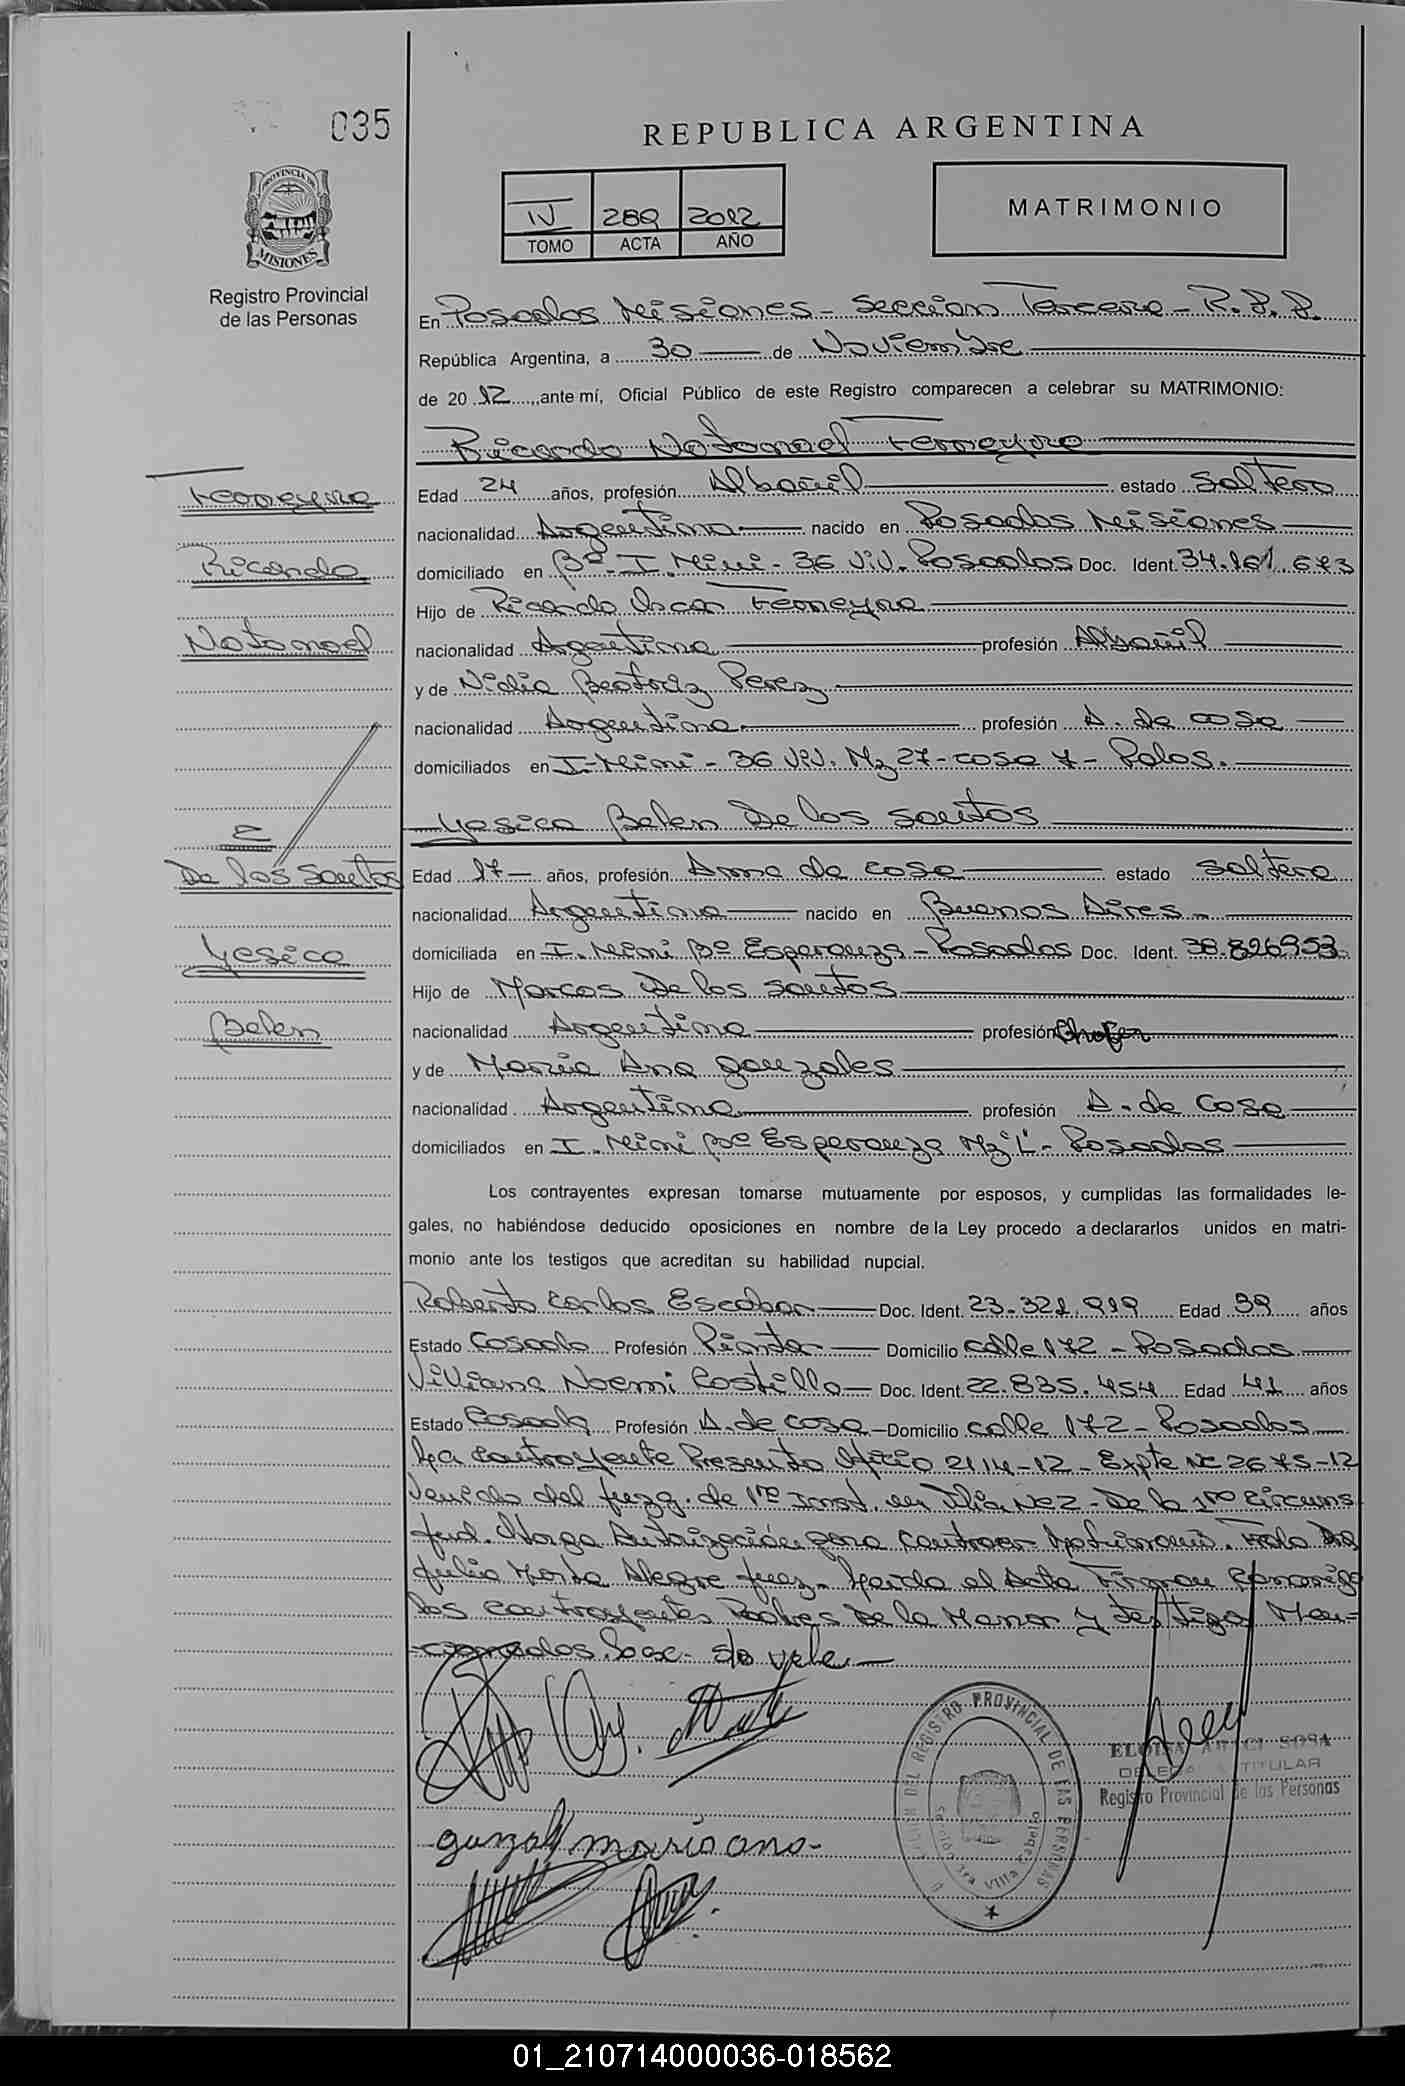 035
REPUBLICA ARGENTINA
PROVINCIA DE
MISIONES
Registro Provincial
de las Personas
IV 289 2012
TOMO ACTA AÑO
MATRIMONIO
En Posadas Misiones - Seccion Tercera - R.P.P.
República Argentina, a 30 de Noviembre
de 20 12 , ante mí, Oficial Público de este Registro comparecen a celebrar su MATRIMONIO:
Ricardo Natanael Ferreyra
Ferreyra
Ricardo
Natanael
Edad 24 años, profesión Albañil estado Soltero
nacionalidad Argentina nacido en Posadas Misiones
domiciliado en Bº I. Mini - 36 Viv. Posadas Doc. Ident. 34.161.673
Hijo de Ricardo Oscar Ferreyra
nacionalidad Argentina profesión Albañil
y de Nidia Beatriz Perez
nacionalidad Argentina profesión A. de casa
domiciliados en I. Mini - 36 Viv. Mz 27 - casa 7 - Pdas.
Yesica Belen De los Santos
E
De los Santos
Yesica
Belen
Edad 17 años, profesión Ama de casa estado soltera
nacionalidad Argentina nacido en Buenos Aires
domiciliada en I. Mini Bº Esperanza - Posadas Doc. Ident. 38.826953
Hijo de Marcos De los Santos
nacionalidad Argentina profesión Chofer
y de Maria Ana Gonzales
nacionalidad Argentina profesión A. de Casa
domiciliados en I. Mini Bº Esperanza Mz "L" - Posadas
Los contrayentes expresan tomarse mutuamente por esposos, y cumplidas las formalidades le-
gales, no habiéndose deducido oposiciones en nombre de la Ley procedo a declararlos unidos en matri-
monio ante los testigos que acreditan su habilidad nupcial.
Roberto Carlos Escobar Doc. Ident. 23.321.919 Edad 39 años
Estado Casado Profesión Pintor Domicilio calle 172 - Posadas
Viviana Noemi Costillo Doc. Ident. 22.835.454 Edad 41 años
Estado Casada Profesión A. de casa Domicilio calle 172 - Posadas
La contrayente Presento Oficio 2114-12 - Expte Nº 2675-12
Venido del Juzg. de 1ra Inst. en Flia Nº 2 - De la 1ra Circuns
Jud. Otorga Autorización para contraer Matrimonio. Fdo Dra
Julia Marta Alegre Juez - Leida el Acta Firman Conmigo
los contrayentes Padres De la Menor y testigos Men-
cionados. vale
gonzal maria ana
REGISTRO PROVINCIAL DE LAS PERSONAS
Sección 3ra Villa Cabello
ELOISA SOSA
DELEGADA TITULAR
Registro Provincial de las Personas
01_210714000036-018562